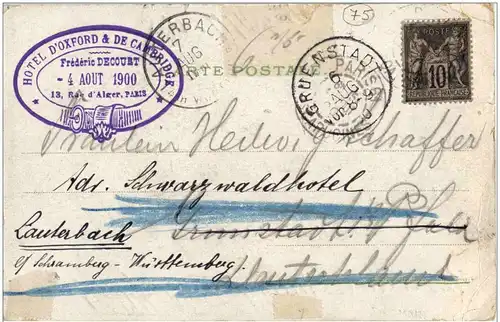 75
HOTEL D'OXFORD & DE CAMBRIDGE
Frédéric DECOURT
- 4 AOUT 1900
13, Rue d'Alger. PARIS
ERBAC
7
AUG
CARTE POSTALE
GRUENSTADT
6 AUG
PARIS
POSTES
10
REPUBLIQUE FRANÇAISE
Fräulein Hedwig Schaffer
Adr. Schwarzwaldhotel
Lauterbach
Grunstadt Pfalz
b/ Schramberg - Württemberg.
Deutschland